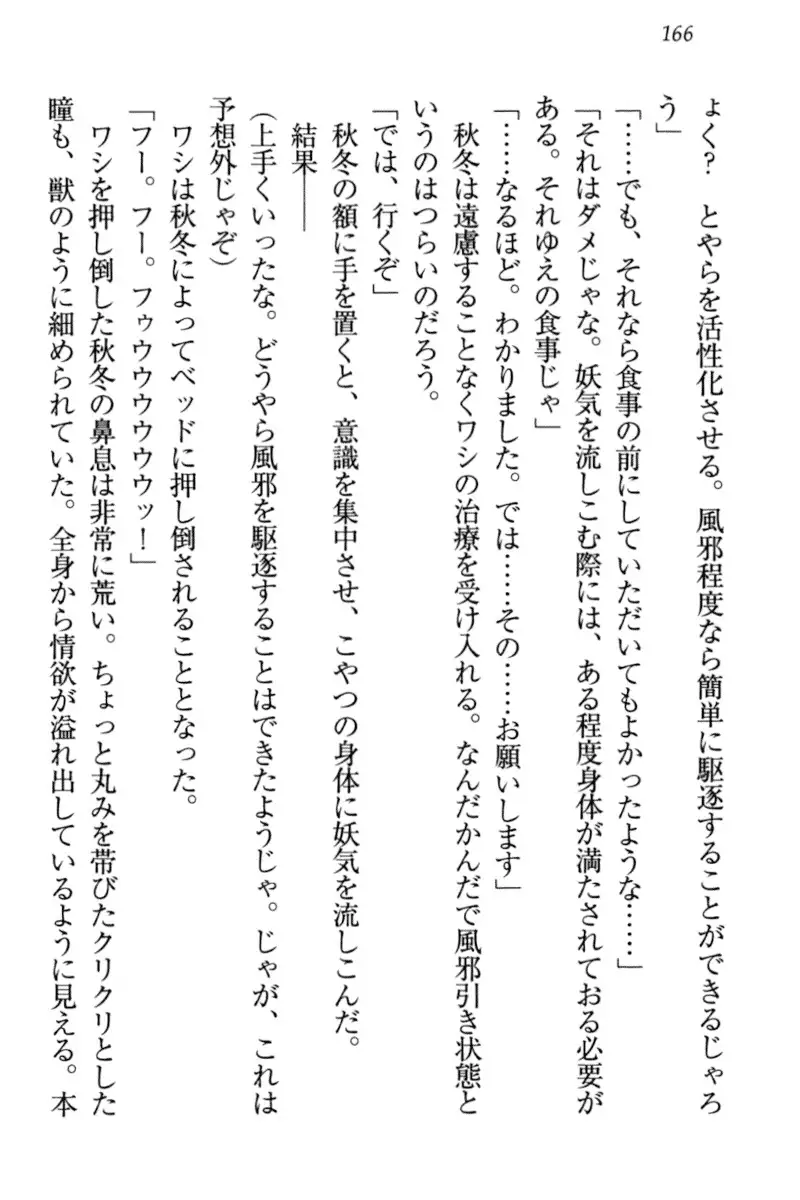 166
ょく？　とやらを活性化させる。風邪程度なら簡単に駆逐することができるじゃろ
う」
「……でも、それなら食事の前にしていただいてもよかったような……」
「それはダメじゃな。妖気を流しこむ際には、ある程度身体が満たされておる必要が
ある。それゆえの食事じゃ」
「……なるほど。わかりました。では……その……お願いします」
　秋冬は遠慮することなくワシの治療を受け入れる。なんだかんだで風邪引き状態と
いうのはつらいのだろう。
「では、行くぞ」
　秋冬の額に手を置くと、意識を集中させ、こやつの身体に妖気を流しこんだ。
　結果――
（上手くいったな。どうやら風邪を駆逐することはできたようじゃ。じゃが、これは
予想外じゃぞ）
　ワシは秋冬によってベッドに押し倒されることとなった。
「フー。フー。フゥウウウウウウッ！」
　ワシを押し倒した秋冬の鼻息は非常に荒い。ちょっと丸みを帯びたクリクリとした
瞳も、獣のように細められていた。全身から情欲が溢れ出しているように見える。本